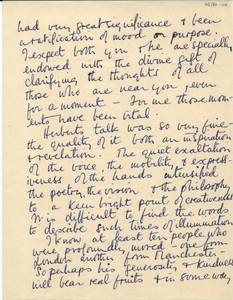 had very great significance & been
a ratification of mood or purpose.
I expect both you & he are specially
endowed with the divine gift of
clarifying the thoughts of all
those who are near you even
for a moment - for me those mom-
ents have been vital.
Herbert's talk was so very fine
the quality of it both an inspiration
& revelation. The quiet exaltation
of the voice the mobility & express-
iveness of the hands intensified
the poetry the vision & the philosophy
to a keen bright point of creativeness
It is difficult to find the words
to describe such times of illumination
I know at least ten people who
were profoundly moved - one from
London another from Manchester -
So perhaps his generosity & kindness
will bear real fruits & in some way